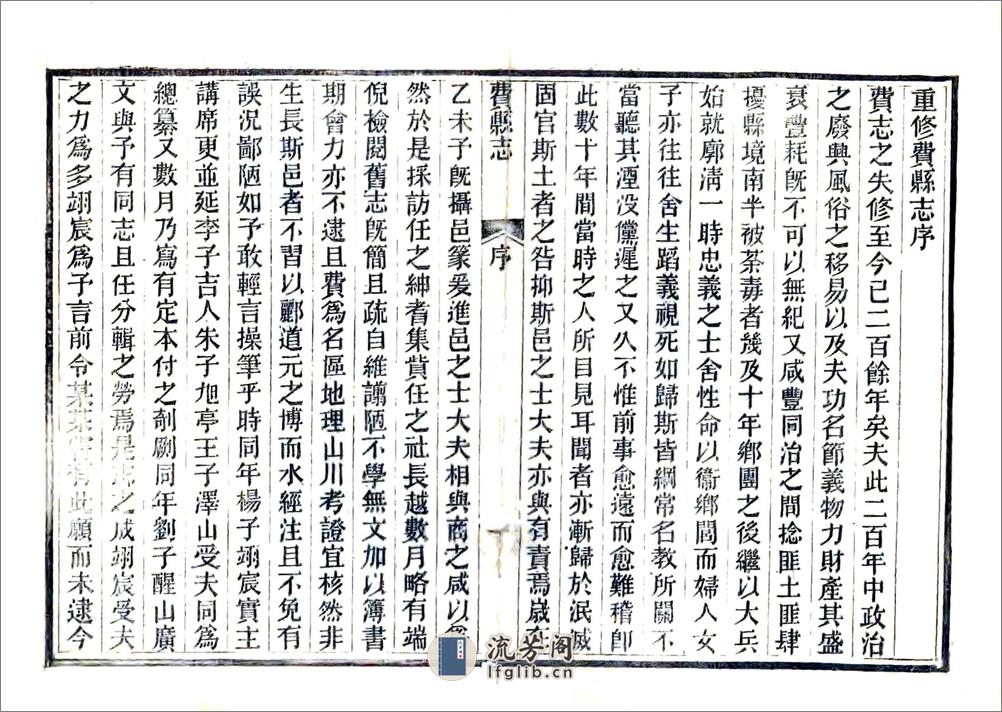 重修費縣志序
費志之失修至今已二百餘年矣夫此二百年中政治
之廢興風俗之移易以及夫功名節義物力財產其盛
衰豐耗旣不可以無紀又咸豐同治之間捻匪土匪肆
擾縣境南半被荼毒者幾及十年鄉團之後繼以大兵
始就廓清一時忠義之士舍性命以衞鄉閭而婦人女
子亦往往舍生蹈義視死如歸斯皆綱常名教所關不
當聽其湮没儻遲之又久不惟前事愈遠而愈難稽卽
此數十年間當時之人所目見耳聞者亦漸歸於泯滅
固官斯土者之咎抑斯邑之士大夫亦與有責焉歲在
費縣志
序
乙未予旣攝邑篆爰進邑之士大夫相與商之咸以爲
然於是採訪任之紳耆集貲任之社長越數月略有端
倪檢閱舊志旣簡且疏自維譾陋不學無文加以簿書
期會力亦不逮且費爲名區地理山川考證宜核然非
生長斯邑者不習以酈道元之博而水經注且不免有
誤况鄙陋如予敢輕言操筆乎時同年楊子翊宸實主
講席更並延李子吉人朱子旭亭王子澤山受夫同爲
總纂又數月乃寫有定本付之剞劂同年劉子醒山廣
文與予有同志且任分輯之勞焉是志之成翊宸受夫
之力爲多翊宸爲予言前令某某皆有此願而未逮今
流芳阁
lfglib.cn